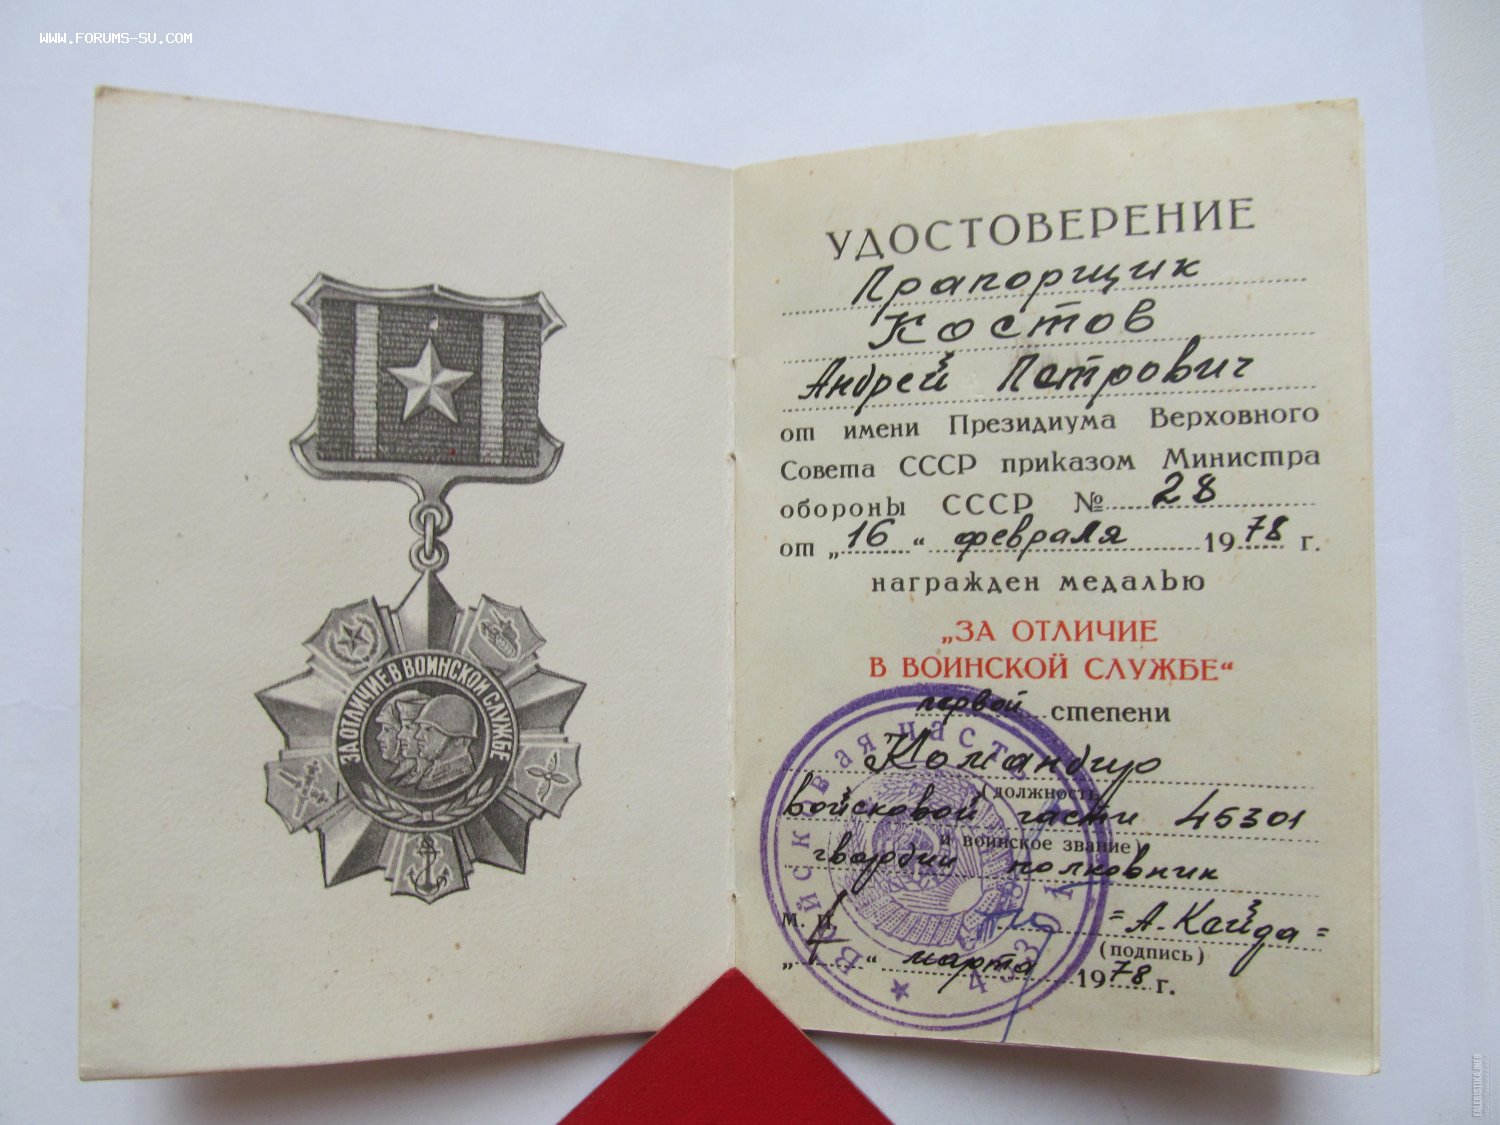 WWW.FORUMS-SU.COM
ЗА ОТЛИЧИЕ В ВОИНСКОЙ СЛУЖБЕ
УДОСТОВЕРЕНИЕ
Прапорщик
Костов
Андрей Петрович
от имени Президиума Верховного
Совета СССР приказом Министра
обороны СССР № 28
от „16“ февраля 1978 г.
награжден медалью
„ЗА ОТЛИЧИЕ
В ВОИНСКОЙ СЛУЖБЕ“
первой степени
Командир
(должность
войсковой части 45301
и воинское звание)
гвардии полковник
М. П. =А. Кайда=
(подпись)
„ “ марта 1978 г.
Войсковая часть
FALERISTIKA.INFO